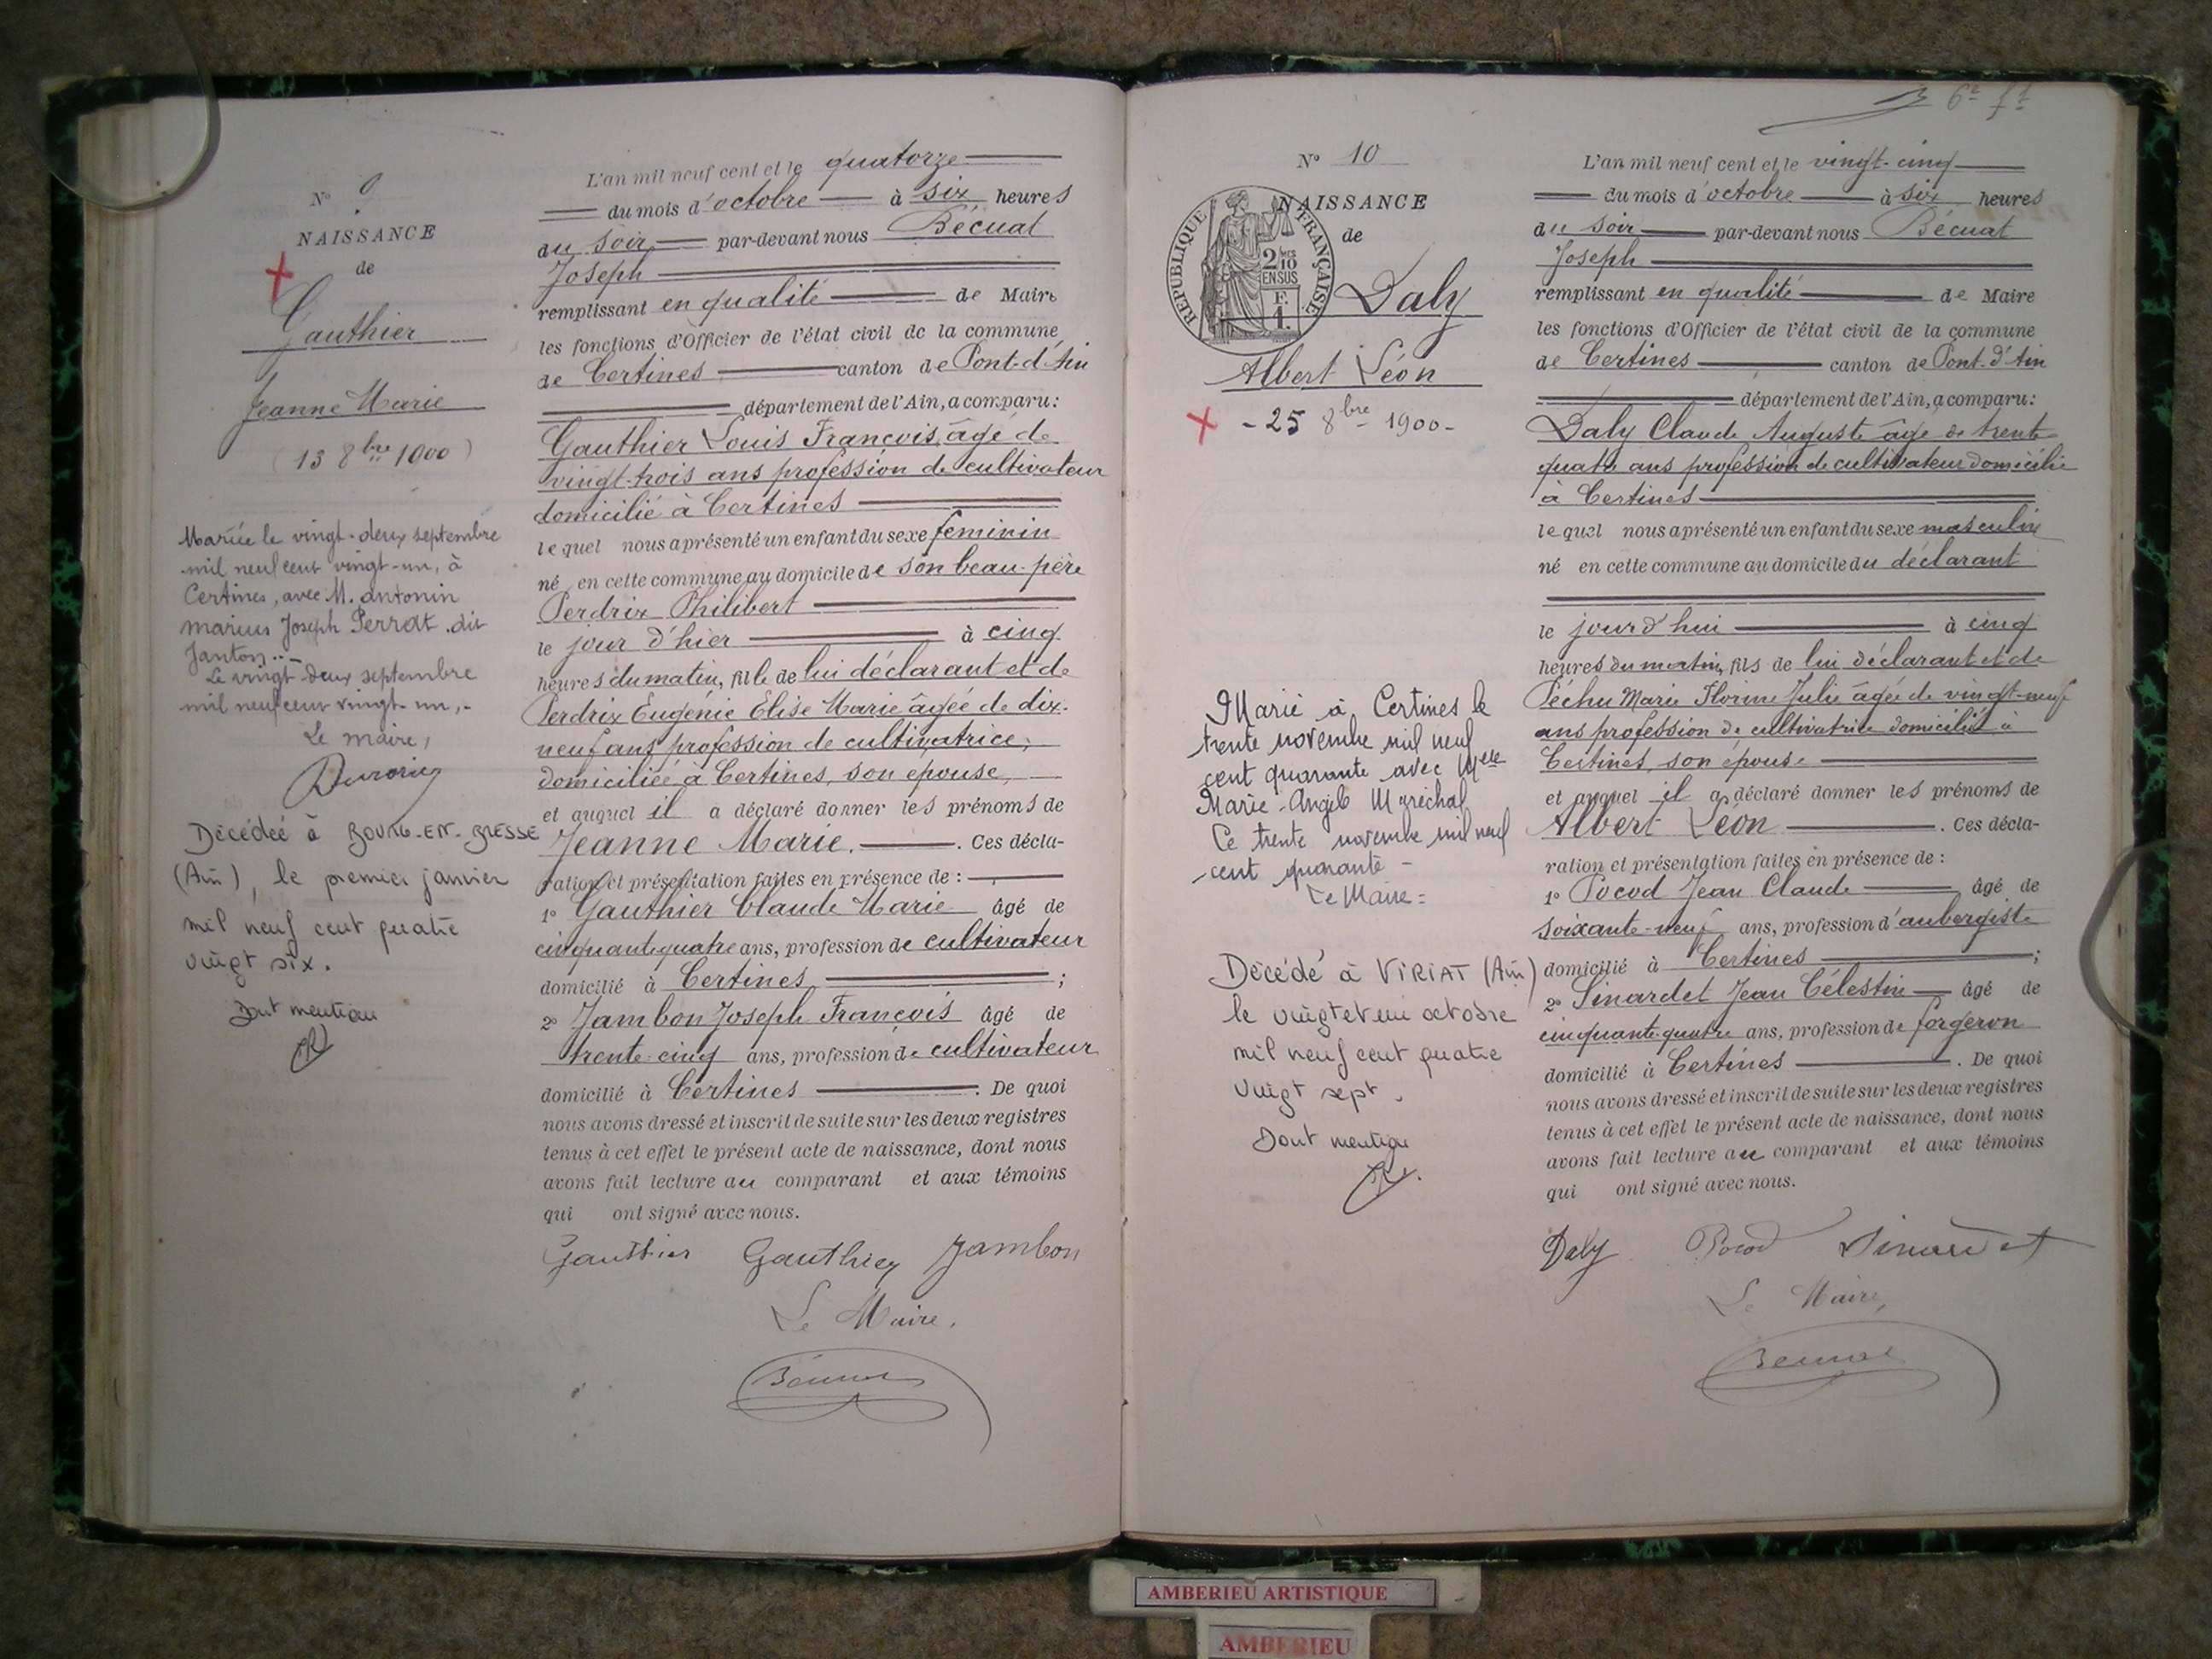 N° 9
NAISSANCE
de
Gauthier
Jeanne Marie
(13 8bre 1900)
Mariée le vingt-deux septembre
mil neuf cent vingt-un, à
Certines, avec M. Antonin
Marius Joseph Perrat dit
Janton.
Le vingt-deux septembre
mil neuf cent vingt-un,
Le maire,
Décédée à BOURG-EN-BRESSE
(Ain), le premier janvier
mil neuf cent quatre
vingt six.
Dont mention
L'an mil neuf cent et le quatorze
du mois d'octobre à six heures
du soir par-devant nous Bécuat
Joseph
remplissant en qualité de Maire
les fonctions d'Officier de l'état civil de la commune
de Certines canton de Pont-d'Ain
département de l'Ain, a comparu:
Gauthier Louis François, âgé de
vingt-trois ans profession de cultivateur
domicilié à Certines
lequel nous a présenté un enfant du sexe féminin
né en cette commune au domicile de son beau-père
Perdrix Philibert
le jour d'hier à cinq
heures du matin, fille de lui déclarant et de
Perdrix Eugénie Elise Marie âgée de dix-
neuf ans profession de cultivatrice,
domiciliée à Certines, son épouse,
et auquel il a déclaré donner les prénoms de
Jeanne Marie. Ces décla-
ration et présentation faites en présence de :
1° Gauthier Claude Marie âgé de
cinquante quatre ans, profession de cultivateur
domicilié à Certines ;
2° Jambon Joseph François âgé de
trente-cinq ans, profession de cultivateur
domicilié à Certines . De quoi
nous avons dressé et inscrit de suite sur les deux registres
tenus à cet effet le présent acte de naissance, dont nous
avons fait lecture au comparant et aux témoins
qui ont signé avec nous.
Gauthier Gauthier Jambon
Le Maire,
Bécuat
6e ft
N° 10
NAISSANCE
de
REPUBLIQUE FRANÇAISE
2 10
EN SUS
F.
1.
Daly
Albert Léon
- 25 8bre 1900 -
Marié à Certines le
trente novembre mil neuf
cent quarante avec Melle
Marie-Angèle Maréchal
Ce trente novembre mil neuf
cent quarante -
Le Maire =
Décédé à VIRIAT (Ain)
le vingt et un octobre
mil neuf cent quatre
vingt sept.
Dont mention
L'an mil neuf cent et le vingt-cinq
du mois d'octobre à six heures
du soir par-devant nous Bécuat
Joseph
remplissant en qualité de Maire
les fonctions d'Officier de l'état civil de la commune
de Certines canton de Pont-d'Ain
département de l'Ain, a comparu:
Daly Claude Auguste âgé de trente
quatre ans profession de cultivateur domicilié
à Certines
lequel nous a présenté un enfant du sexe masculin
né en cette commune au domicile du déclarant
le jour d'hui à cinq
heures du matin, fils de lui déclarant et de
Péchu Marie Florine Julie âgée de vingt-neuf
ans profession de cultivatrice domiciliée à
Certines, son épouse
et auquel il a déclaré donner les prénoms de
Albert Léon . Ces décla-
ration et présentation faites en présence de :
1° Pocod Jean Claude âgé de
soixante-neuf ans, profession d'aubergiste
domicilié à Certines ;
2° Sinardet Jean Célestin âgé de
cinquante-quatre ans, profession de forgeron
domicilié à Certines . De quoi
nous avons dressé et inscrit de suite sur les deux registres
tenus à cet effet le présent acte de naissance, dont nous
avons fait lecture au comparant et aux témoins
qui ont signé avec nous.
Daly Pocod Sinardet
Le Maire,
Bécuat
AMBERIEU ARTISTIQUE
AMBERIEU